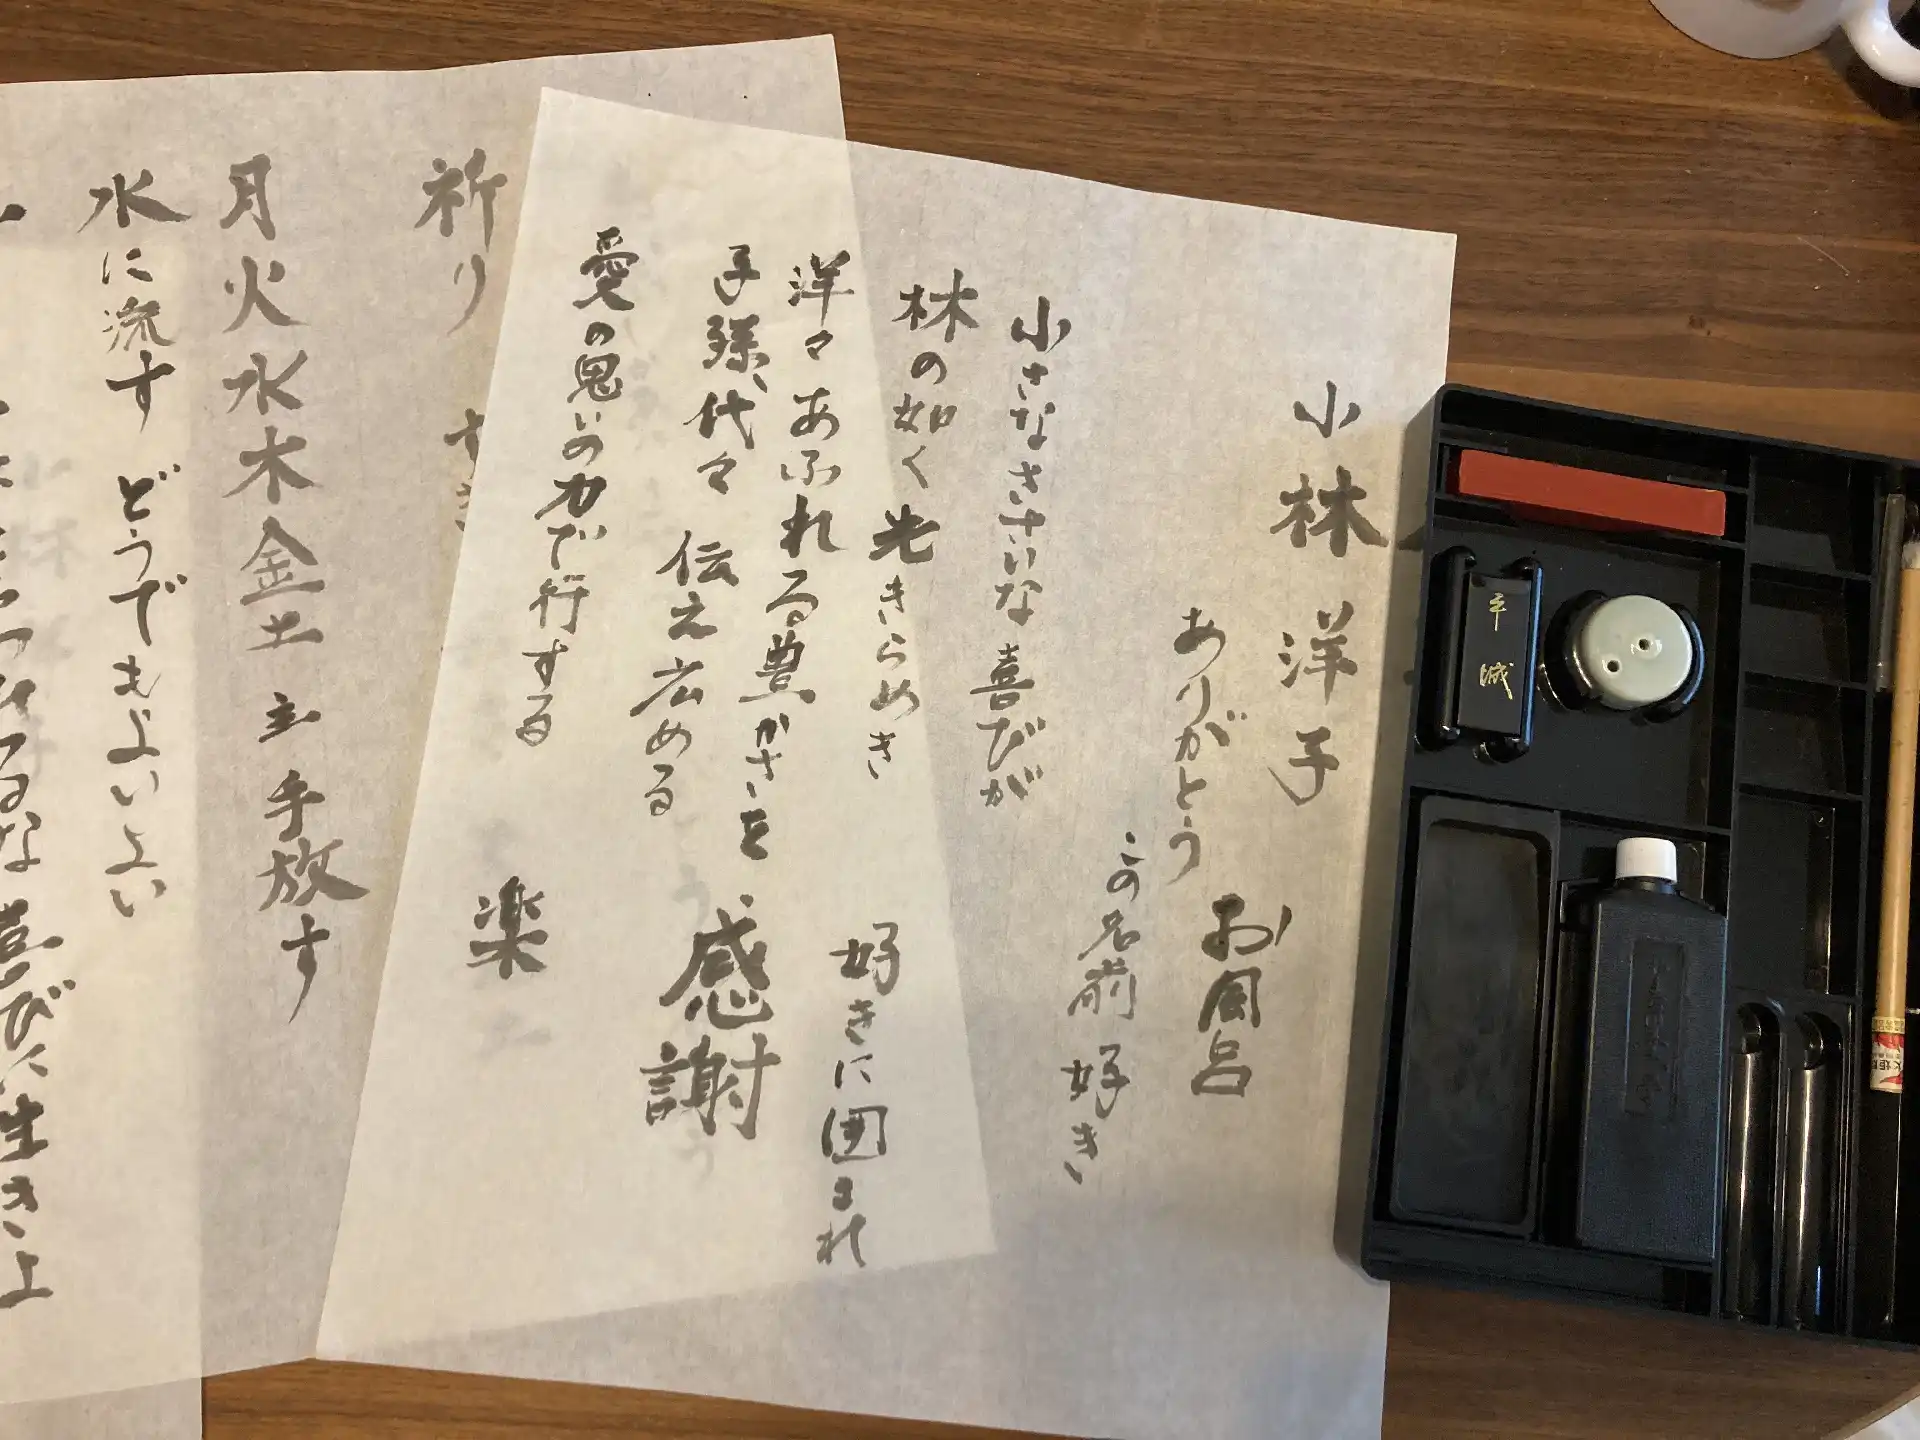 小林洋子
ありがとう
お風呂
この名前 好き
小さなささいな喜びが
林の如く光きらめき
好きに囲まれ
洋々あふれる豊かさを
感謝
子孫、代々 伝え広める
愛の思いの力で行する
楽
祈り
月火水木金土
手放す
水に流す どうでもよいよい
喜びに生きよ